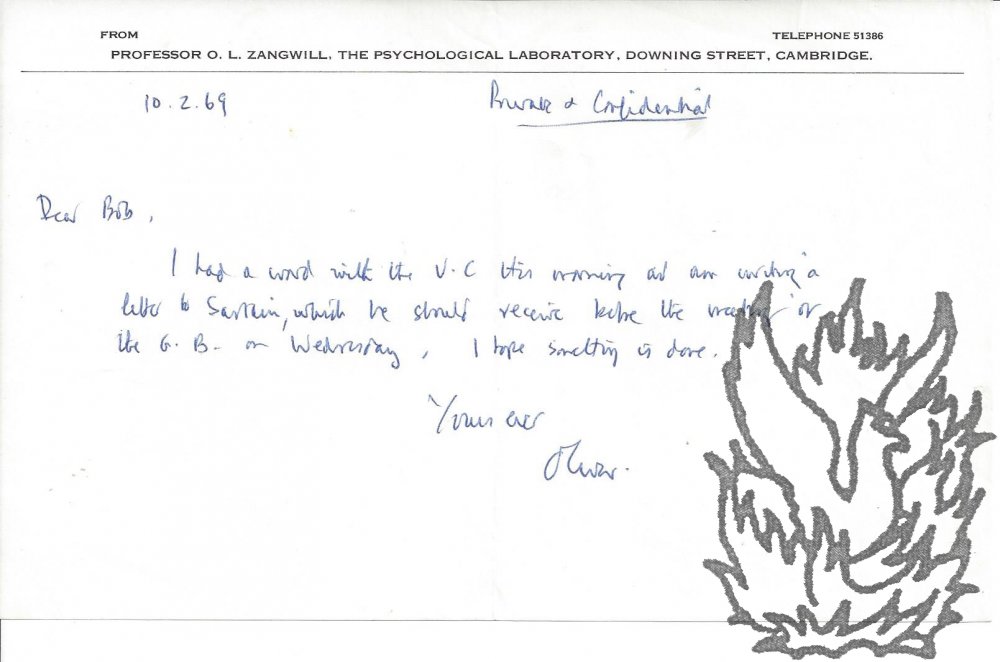 FROM TELEPHONE 51386
PROFESSOR O. L. ZANGWILL, THE PSYCHOLOGICAL LABORATORY, DOWNING STREET, CAMBRIDGE.
10.2.69 Private & Confidential
Dear Bob,
I had a word with the V.C this morning and am writing a
letter to Sartain, which he should receive before the meeting of
the G.B. on Wednesday, I hope something is done.
Yours ever
Oliver.